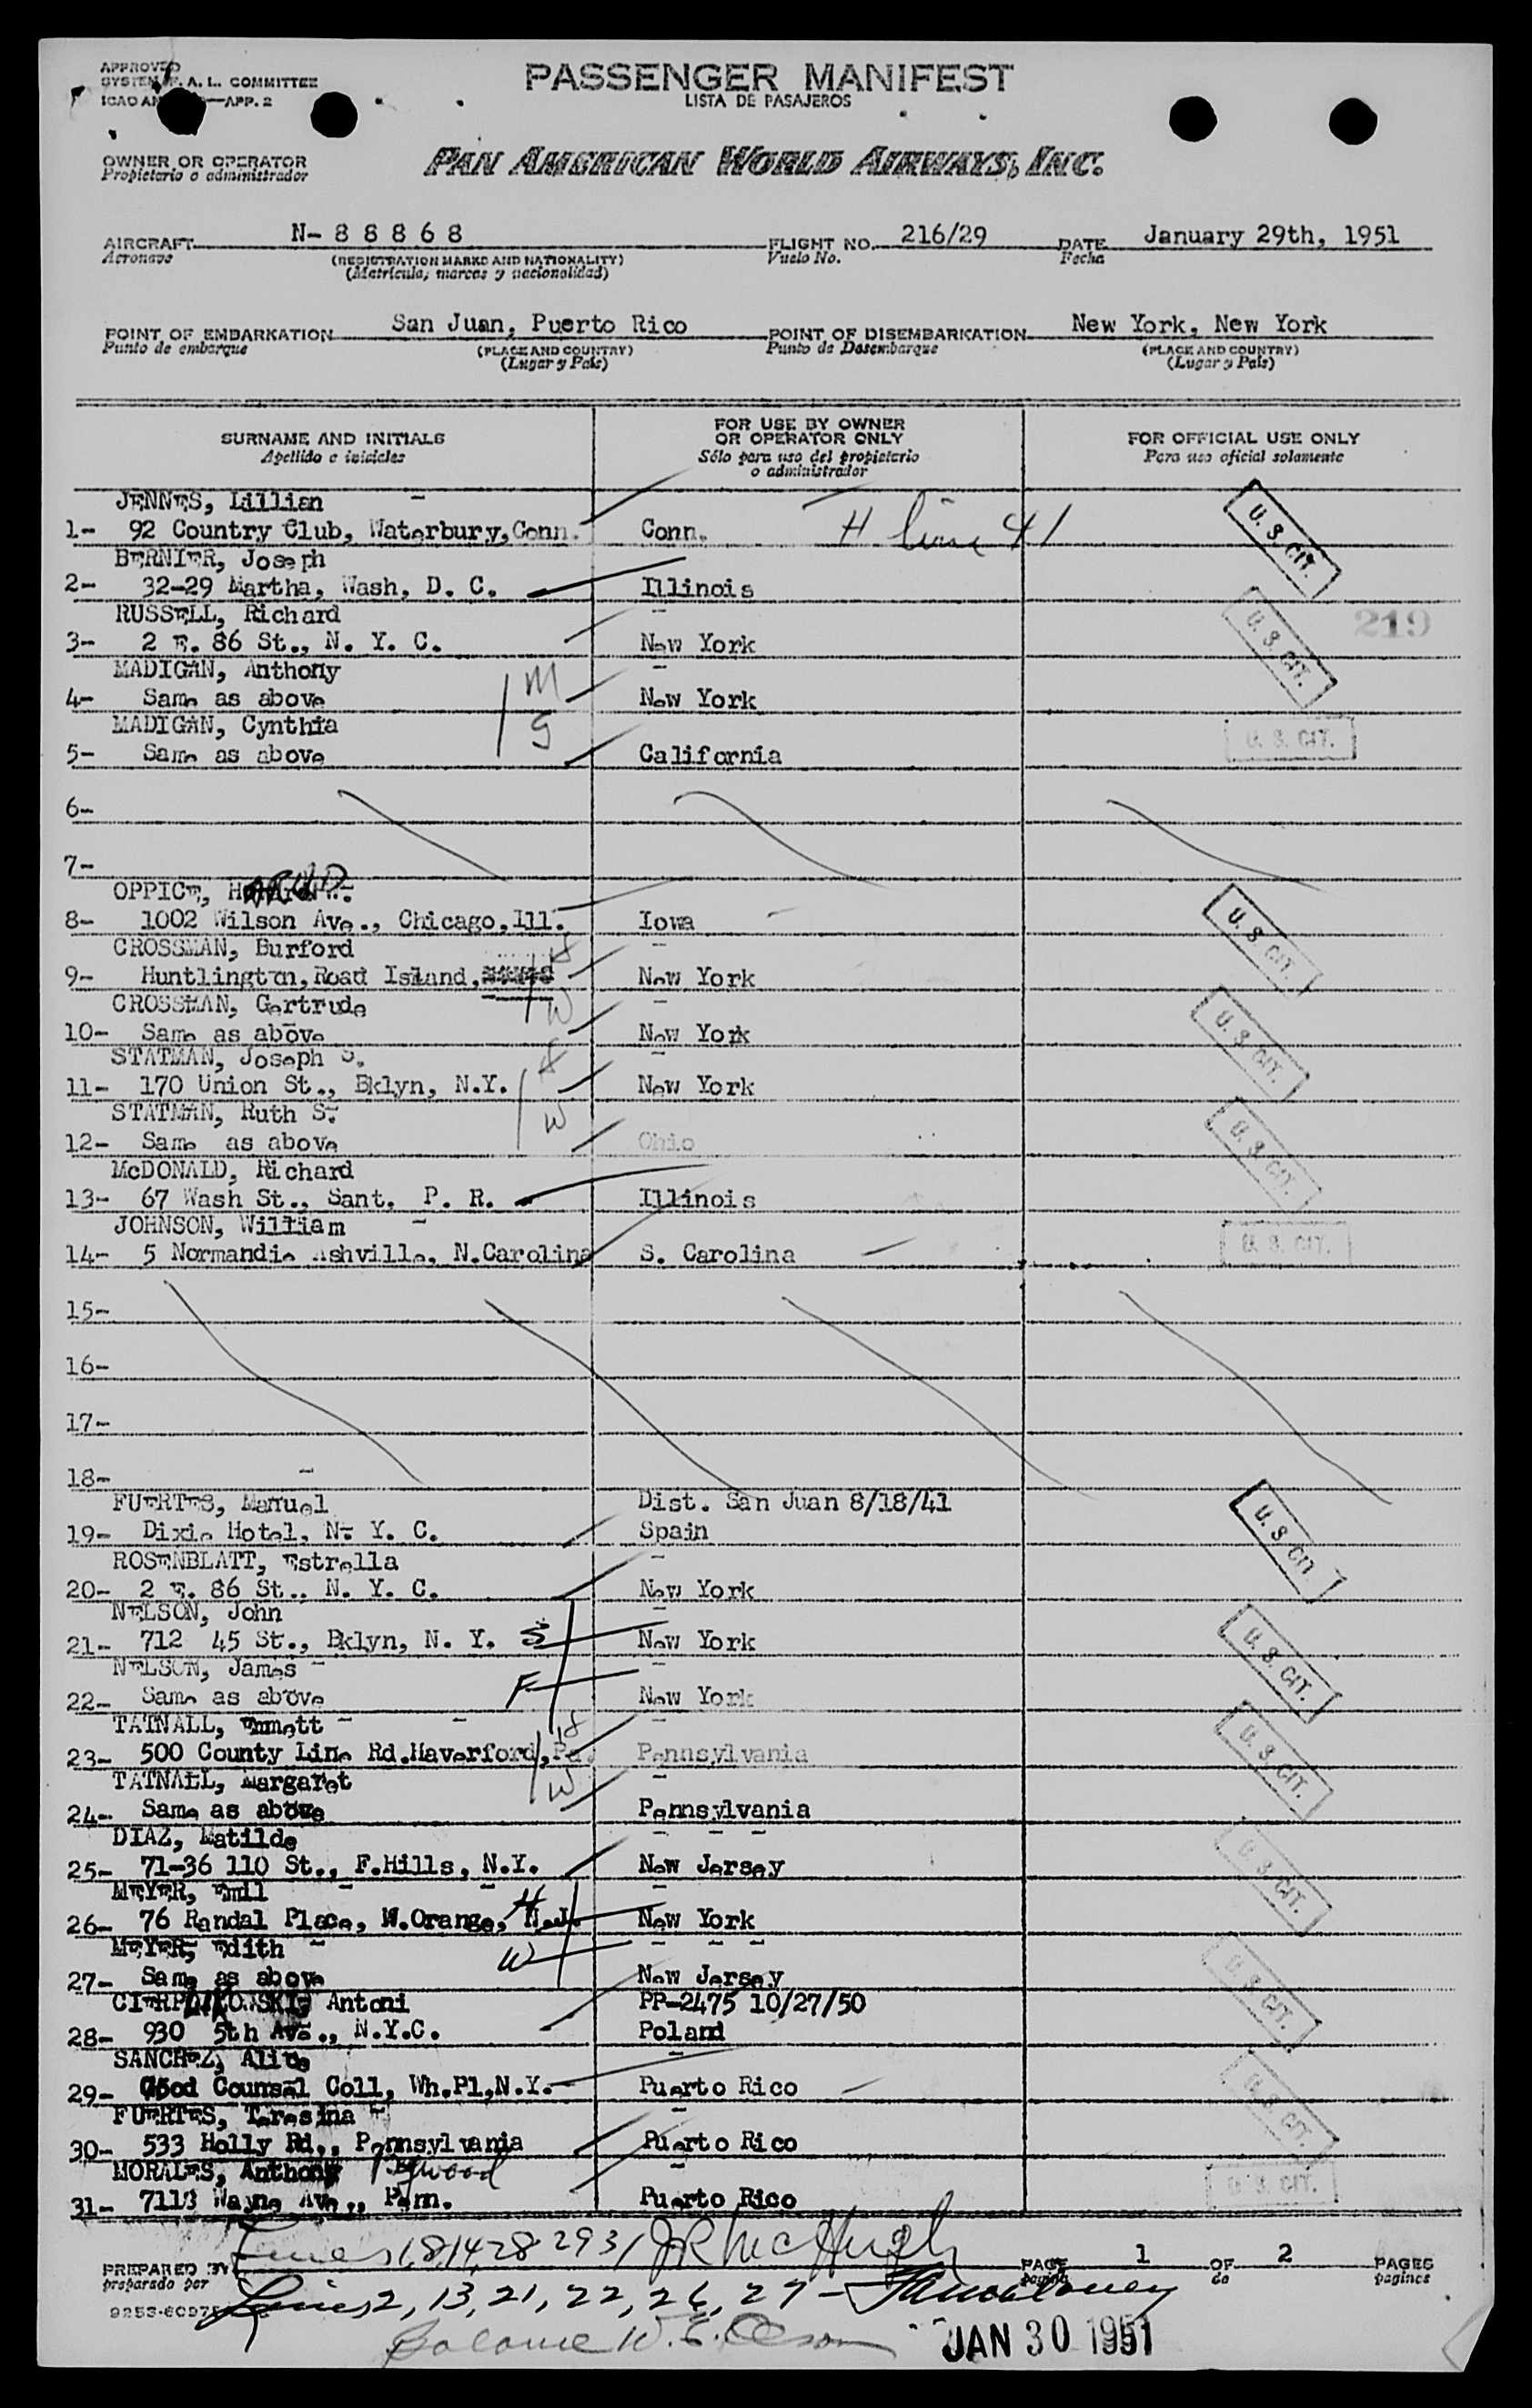 APPROVED
SYSTEM F. A. L. COMMITTEE
ICAO AN —APP. 2
PASSENGER MANIFEST
LISTA DE PASAJEROS
OWNER OR OPERATOR
Propietario o administrador
PAN AMERICAN WORLD AIRWAYS, INC.
AIRCRAFT N- 8 8 8 6 8 FLIGHT NO. 216/29 DATE January 29th, 1951
Aeronave (REGISTRATION MARKS AND NATIONALITY) Vuelo No. Fecha
(Matrícula, marcas y nacionalidad)
POINT OF EMBARKATION San Juan, Puerto Rico POINT OF DISEMBARKATION New York, New York
Punto de embarque (PLACE AND COUNTRY) Punto de Desembarque (PLACE AND COUNTRY)
(Lugar y País) (Lugar y País)
SURNAME AND INITIALS FOR USE BY OWNER OR OPERATOR ONLY FOR OFFICIAL USE ONLY
Apellido e iniciales Sólo para uso del propietario o administrador Para uso oficial solamente
JENNES, Lillian
1- 92 Country Club, Waterbury, Conn. Conn. H line 41 U. S. CIT.
BERNIER, Joseph
2- 32-29 Martha, Wash, D. C. Illinois
RUSSELL, Richard 219
3- 2 E. 86 St., N. Y. C. New York U. S. CIT.
MADIGAN, Anthony M
4- Same as above New York
MADIGAN, Cynthia S
5- Same as above California U. S. CIT.
6-
7-
OPPICE, ARUD
8- 1002 Wilson Ave., Chicago, Ill. Iowa U. S. CIT.
CROSSMAN, Burford H
9- Huntlington, Road Island, New York
CROSSMAN, Gertrude W
10- Same as above New York U. S. CIT.
STATMAN, Joseph S. H
11- 170 Union St., Bklyn, N.Y. New York
STATMAN, Ruth S. W
12- Same as above Ohio U. S. CIT.
McDONALD, Richard
13- 67 Wash St., Sant. P. R. Illinois
JOHNSON, William
14- 5 Normandie Ashville, N.Carolina S. Carolina U. S. CIT.
15-
16-
17-
18-
FUERTES, Manuel Dist. San Juan 8/18/41
19- Dixie Hotel, N. Y. C. Spain U. S. CIT
ROSENBLATT, Estrella
20- 2 E. 86 St., N. Y. C. New York
NELSON, John
21- 712 45 St., Bklyn, N. Y. S New York U. S. CIT.
NELSON, James
22- Same as above F New York
TATNALL, Emmett H
23- 500 County Line Rd.Haverford, Pa. Pennsylvania U. S. CIT.
TATNALL, Margaret W
24- Same as above Pennsylvania
DIAZ, Matilde
25- 71-36 110 St., F.Hills, N.Y. New Jersey U. S. CIT.
MEYER, Emil H
26- 76 Randal Place, W.Orange, N.J. New York
MEYER, Edith W
27- Same as above New Jersey U. S. CIT.
Antoni PP-2475 10/27/50
28- 930 5th Ave., N.Y.C. Poland
SANCHEZ, Alice
29- Good Counsel Coll, Wh.Pl,N.Y. Puerto Rico U. S. CIT.
FUERTES, Teresina
30- 533 Holly Rd., Pennsylvania Puerto Rico
MORALES, Anthony
31- 7113 Wayne Ave., Penn. Puerto Rico U. S. CIT.
Lines 1, 8, 14, 28, 29 31 JR McHugh
PREPARED BY PAGE 1 OF 2 PAGES
preparado por pagina de paginas
Lines 2, 13, 21, 22, 26, 27 -
9253-6097
Balance W. E. Olson JAN 30 1951